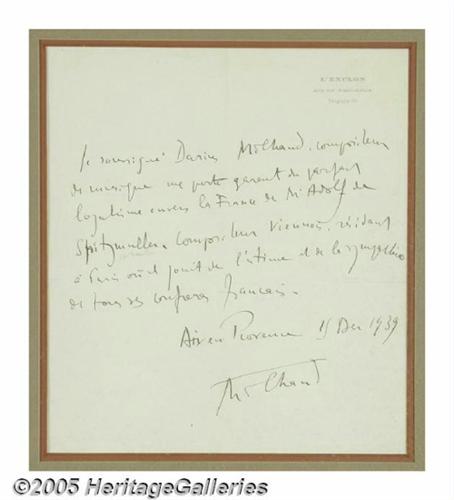 L'ENCLOS
Je soussigné Darius Milhaud, compositeur
de musique me porte garant du parfait
loyalisme envers la France de Mr Adolf de
Spitzmuller, compositeur viennois, résidant
à Paris où il jouit de l'estime et de la sympathie
de tous ses confreres français.
Aix en Provence 15 Dec 1939
Milhaud
©2005 HeritageGalleries